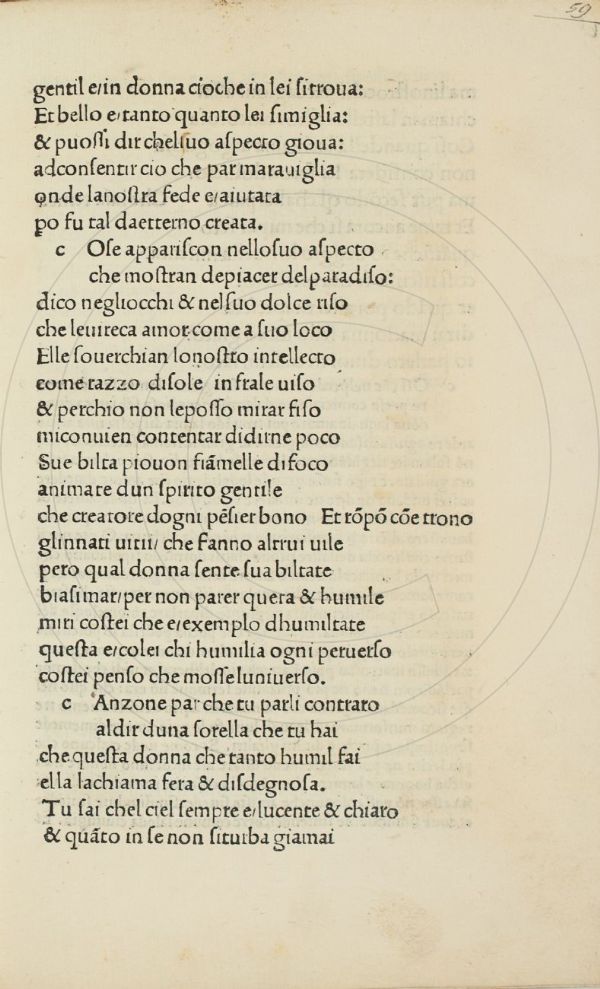 59
gentil e/in donna cioche in lei sitroua:
Et bello e/tanto quanto lei simiglia:
& puossi dir chelsuo aspecto gioua:
adconsentir cio che par marauiglia
onde lanostra fede e/aiutata
po fu tal daetterno creata.
c Ose appariscon nellosuo aspecto
che mostran depiacer delparadiso:
dico negliocchi & nelsuo dolce riso
che leuireca amor come a suo loco
Elle souerchian lonostro intellecto
come razzo disole in frale uiso
& perchio non leposso mirar fiso
miconuien contentar didirne poco
Sue bilta piouon fiãmelle difoco
animate dun spirito gentile
che creatore dogni pẽsier bono Et rõpõ cõe trono
glinnati uitii/ che fanno altrui uile
pero qual donna sente sua biltate
biasimar/per non parer quera & humile
miri costei che e/exemplo dhumiltate
questa e/colei chi humilia ogni peruerso
costei penso che mosseluniuerso.
c Anzone par che tu parli contraro
aldir duna sorella che tu hai
che questa donna che tanto humil fai
ella lachiama fera & disdegnosa.
Tu sai chel ciel sempre e/lucente & chiaro
& quãto in se non siturba giamai